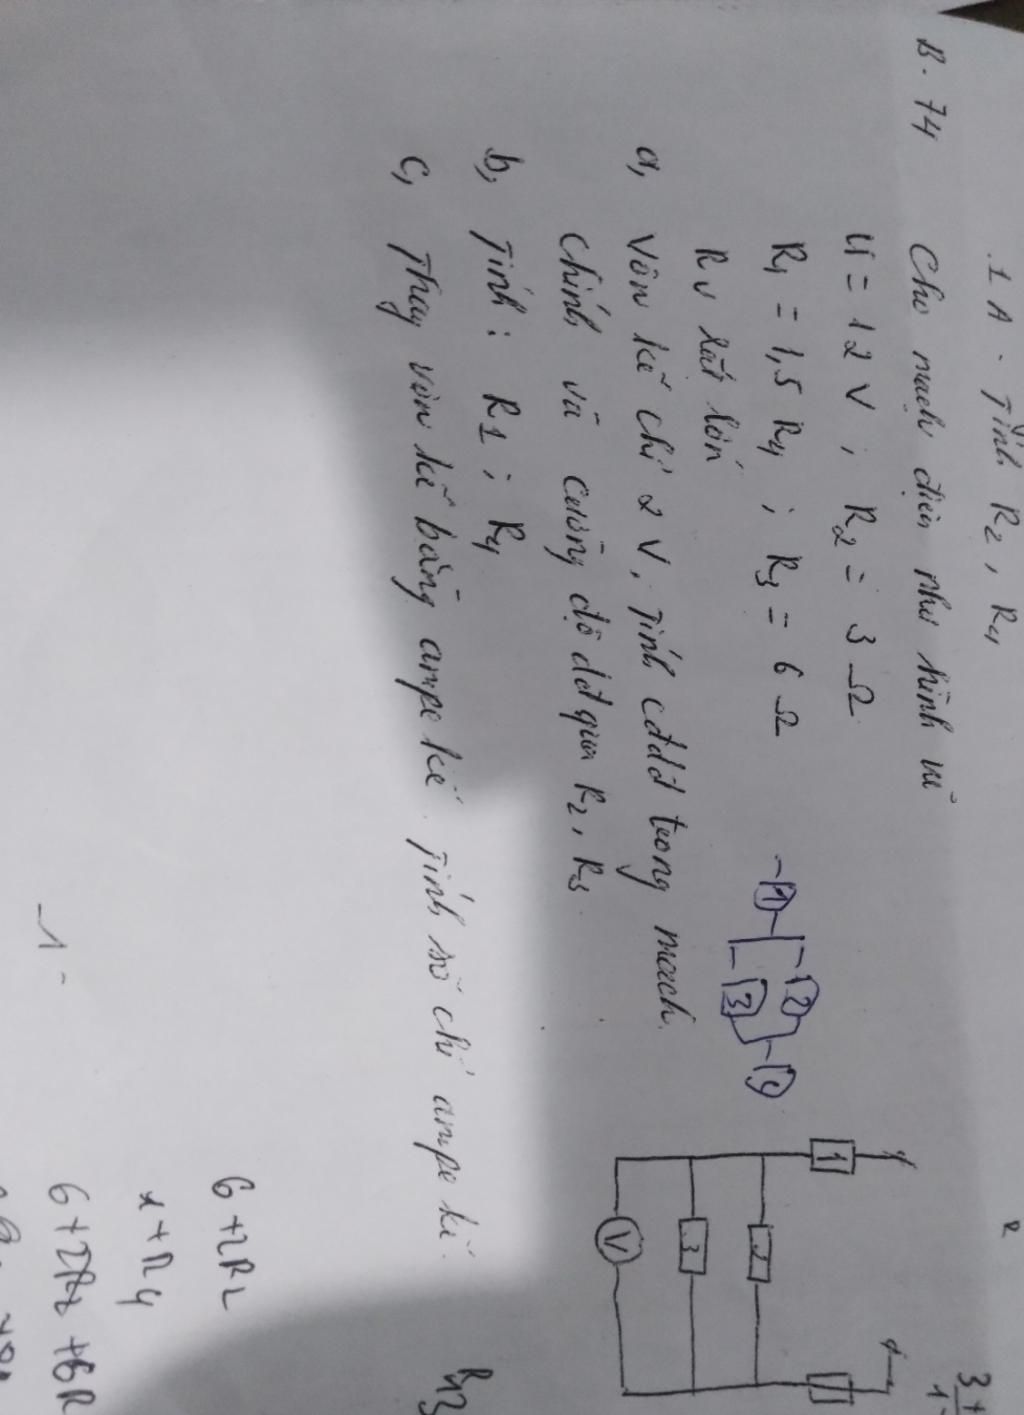 1 A. Tính R2, R4
B. 74 Cho mạch điện như hình vẽ
U = 12 V ; R2 = 3 Ω
R1 = 1,5 R4 ; R3 = 6 Ω
Rv rất lớn
a, Vôn kế chỉ 2 V. Tính cđdđ trong mạch
chính và cường độ dđ qua R2, R3.
b, Tính : R1 ; R4
c, Thay vôn kế bằng ampe kế. Tính số chỉ ampe kế.
1
2
3
4
1
2
3
V
6+2R2
x+R4